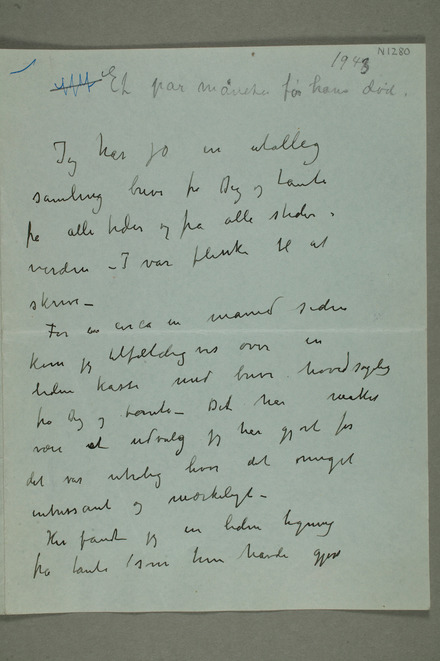 N1280
1943
Et par måneder før hans død.
Jeg har jo en utallig
samling breve fra Dig og Tante
fra alle tider og fra alle steder i
verden – I var flinke til at
skrive –
For en circa en maaned siden
kom jeg tilfældigvis over en
liden kasse med breve hovedsagelig
fra Dig og Tante – Det har maattet
være et udvalg jeg har gjort for
det var utrolig hvor det meget
interessant og mærkeligt –
Her fandt jeg en liden tegning
fra Tante som hun havde gjort